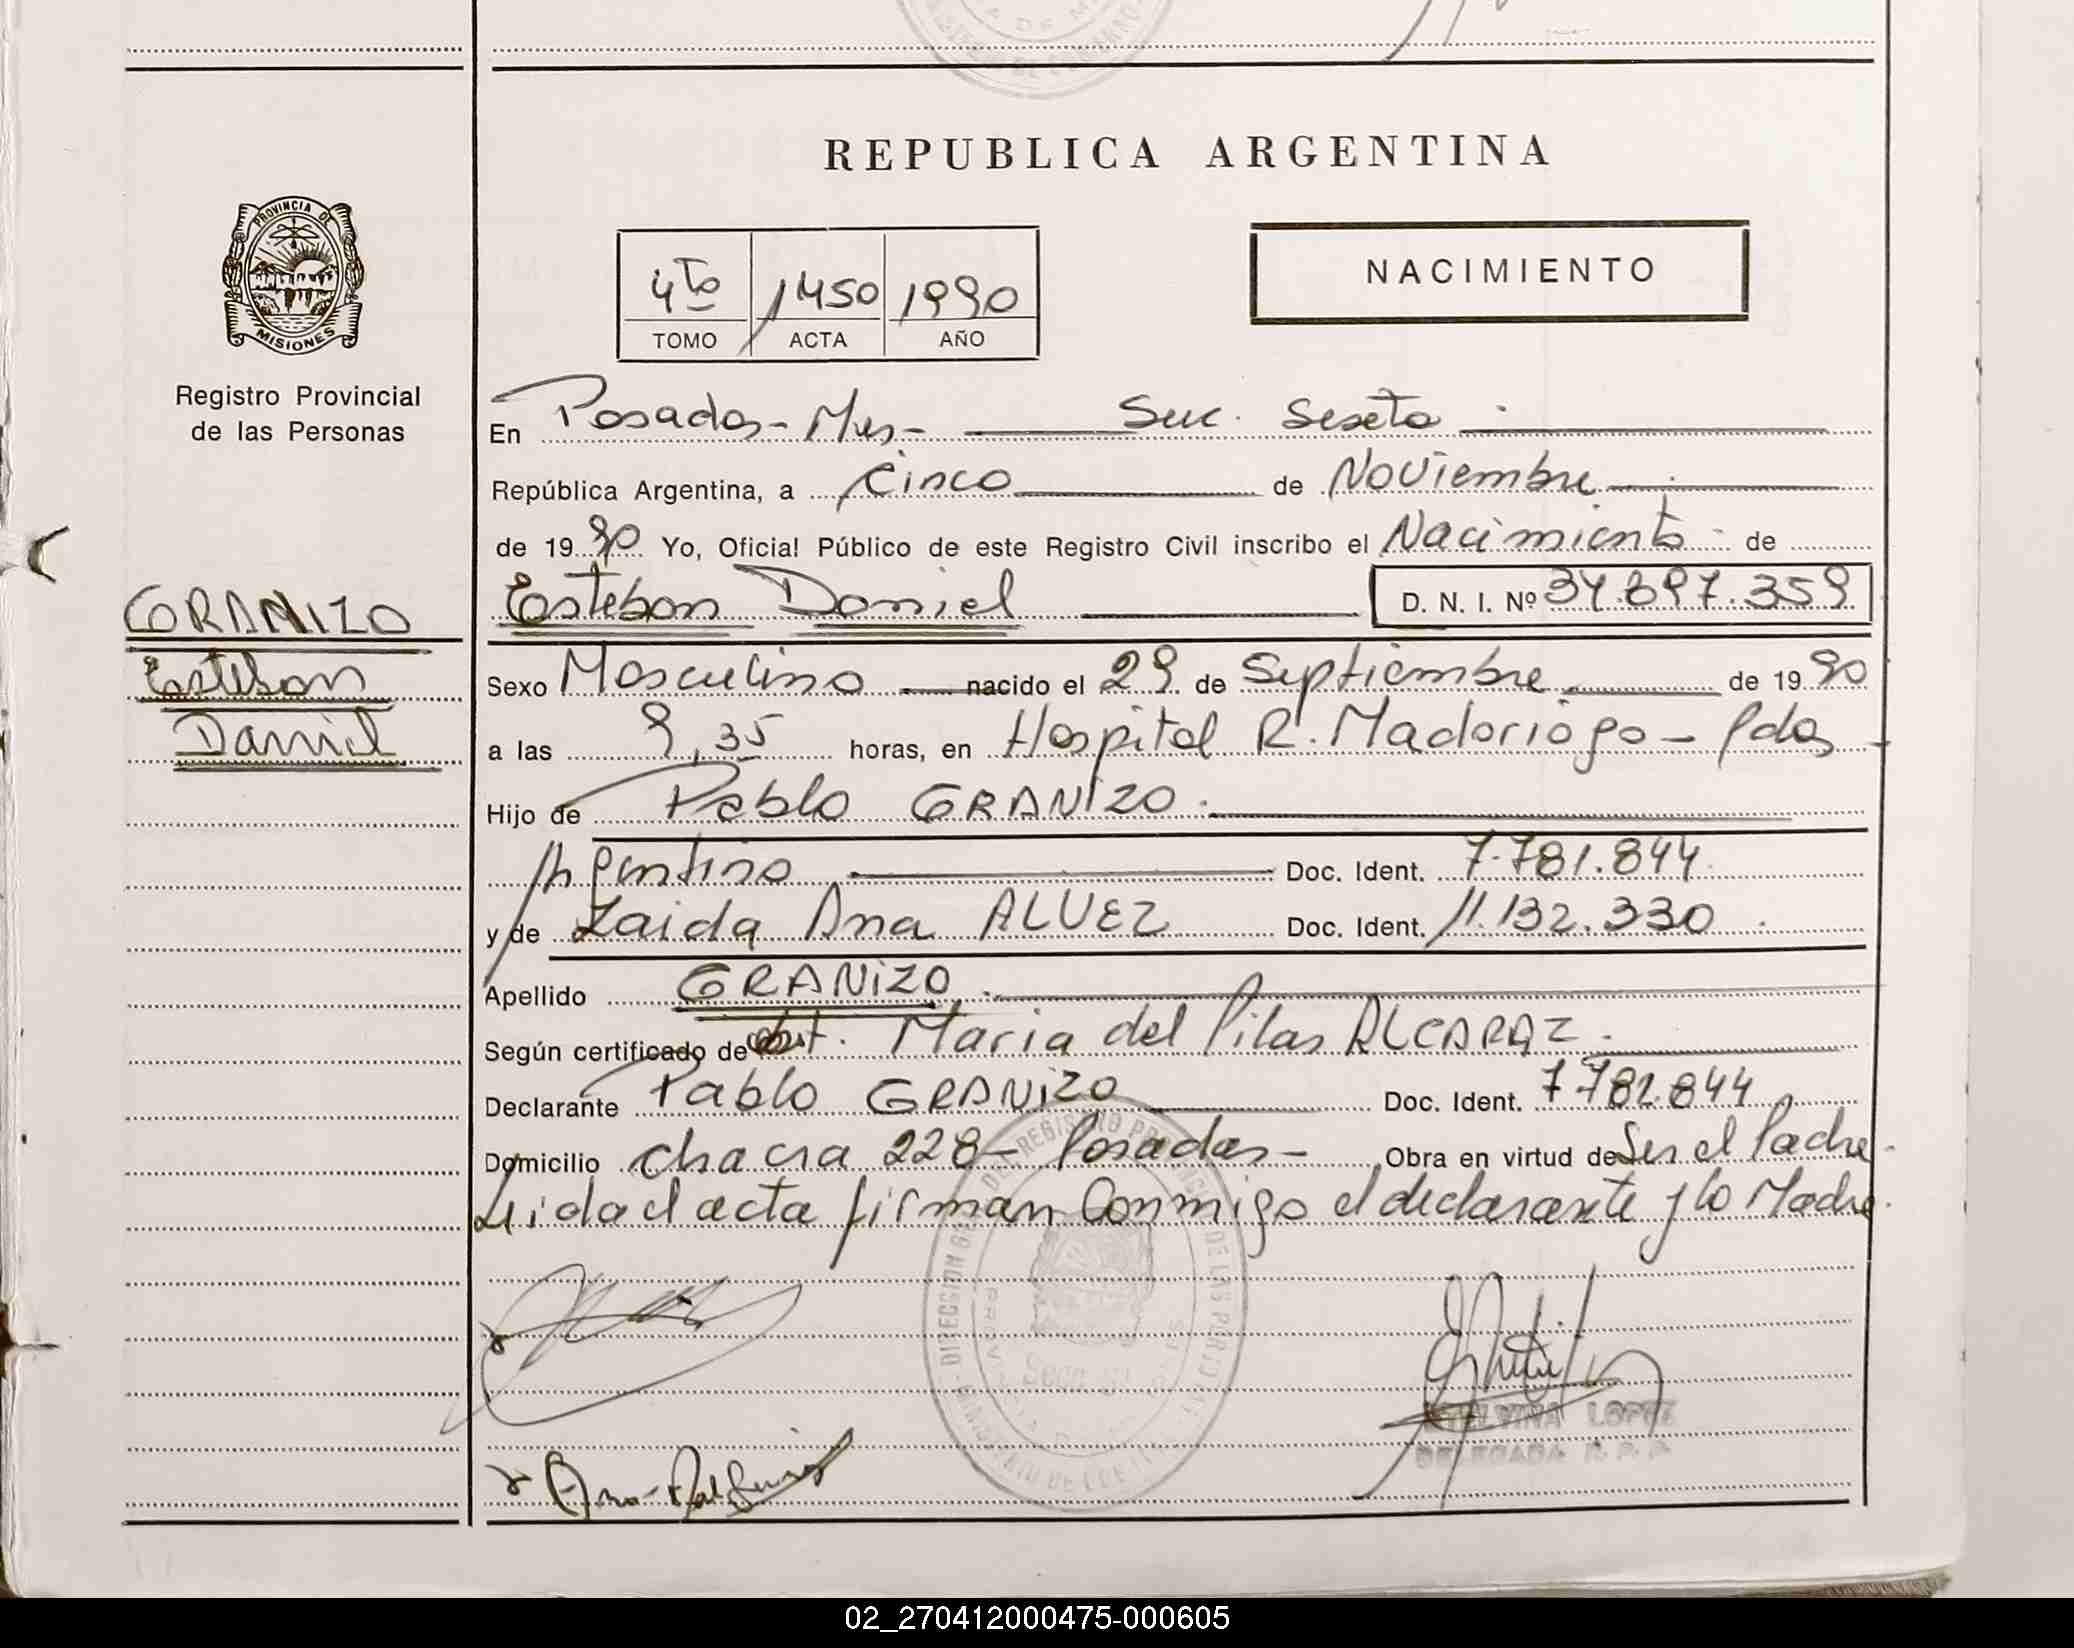 REPUBLICA ARGENTINA
PROVINCIA DE
MISIONES
Registro Provincial
de las Personas
4to 1450 1990
TOMO ACTA AÑO
NACIMIENTO
En Posadas - Mnes - Suc. Sexta
República Argentina, a Cinco de Noviembre
de 1990 Yo, Oficial Público de este Registro Civil inscribo el Nacimiento de
GRANIZO
Esteban
Daniel
Esteban Daniel D. N. I. Nº 34.897.359
Sexo Masculino nacido el 29 de Septiembre de 1990
a las 9,35 horas, en Hospital R. Madariaga - Pdas
Hijo de Pablo GRANIZO
Argentino Doc. Ident. 7.781.844
y de Zaida Ana ALVEZ Doc. Ident. 11.132.330
Apellido GRANIZO
Según certificado de obst. Maria del Pilar ALCARAZ
Declarante Pablo GRANIZO Doc. Ident. 7.781.844
Domicilio chacra 228 - Posadas - Obra en virtud de Ser el Padre
Leida el acta firman Conmigo el declarante y la Madre.
ETELVINA LOPEZ
DELEGADA R. P. P.
02_270412000475-000605